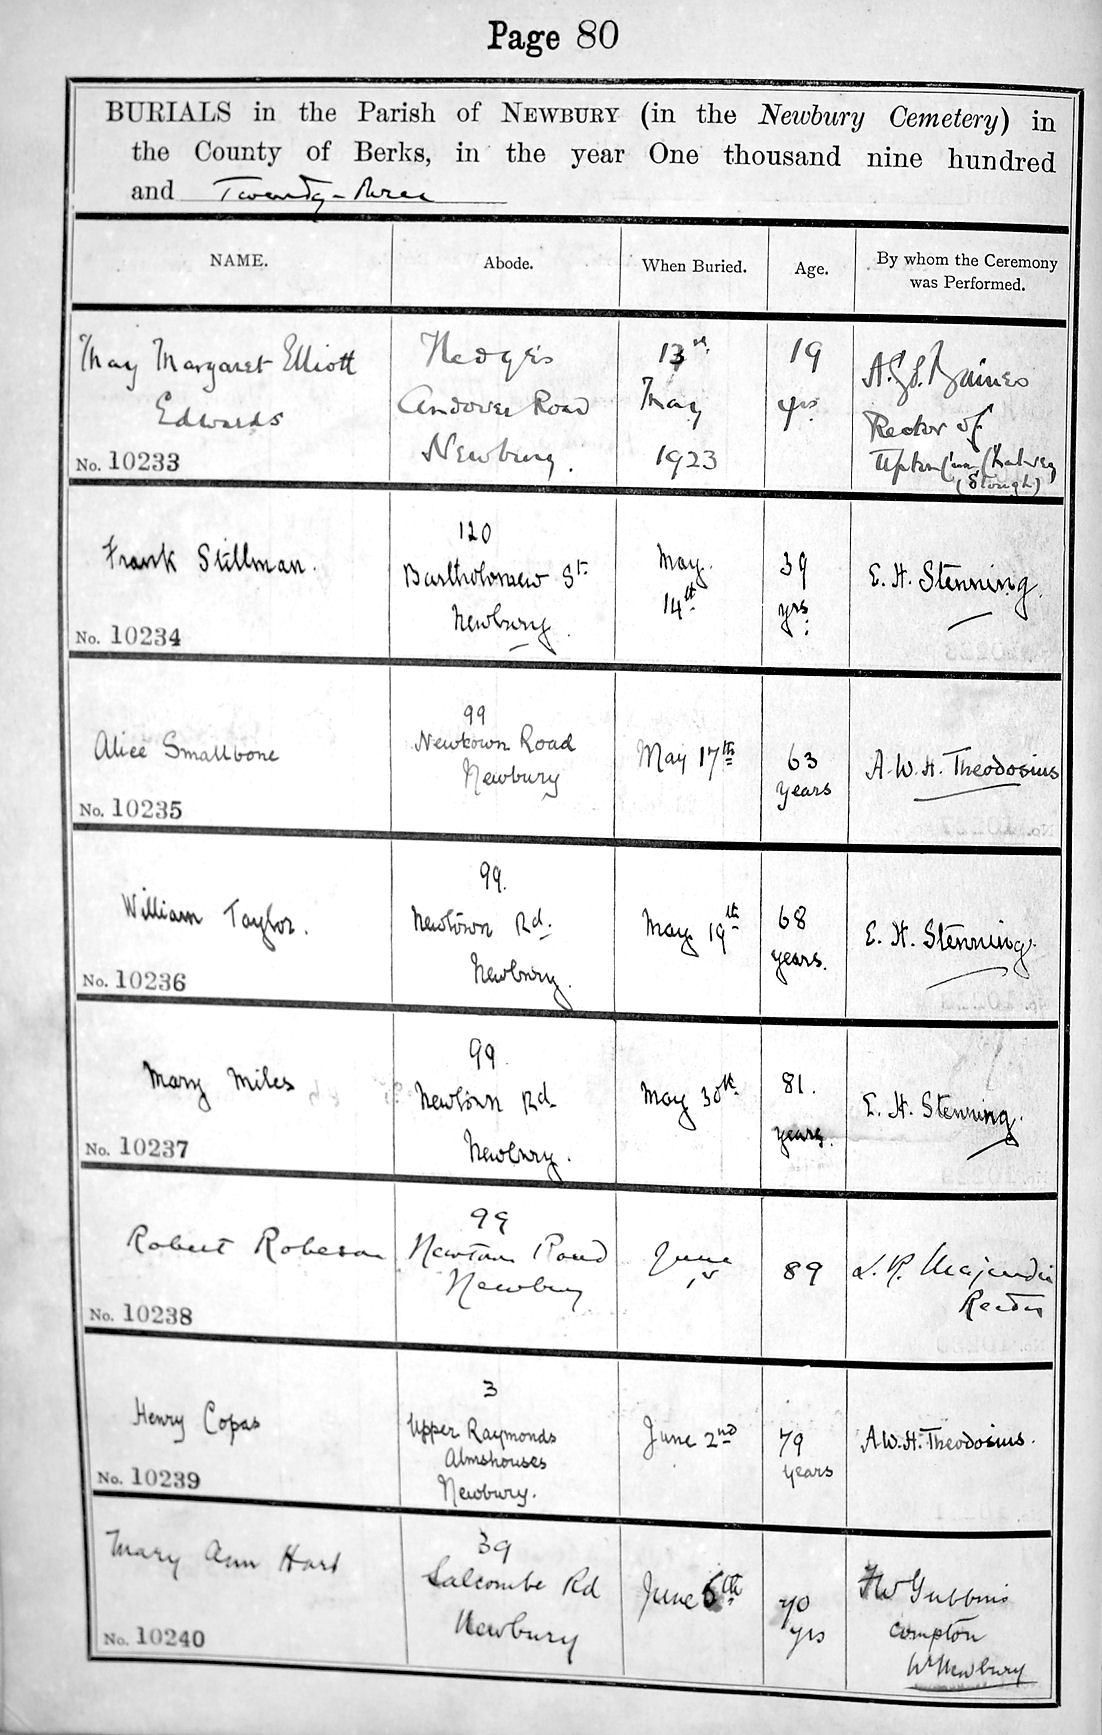 Page 80
BURIALS in the Parish of NEWBURY (in the Newbury Cemetery) in
the County of Berks, in the year One thousand nine hundred
and Twenty-three
NAME.
Abode.
When Buried.
Age.
By whom the Ceremony
was Performed.
May Margaret Elliott
Edwards
No. 10233
Hedges
Andover Road
Newbury.
13
May
1923
19
yrs
Baines
Rector of
Upton
(Slough)
Frank Stillman.
No. 10234
120
Bartholomew St.
Newbury.
May.
14th
39
yrs.
E. H. Stenning.
Alice Smallbone
No. 10235
99
Newtown Road
Newbury
May 17th
63
years
A. W. H. Theodosius
William Taylor.
No. 10236
99.
Newtown Rd.
Newbury.
May 19th
68
years.
E. H. Stenning.
Mary Miles
No. 10237
99.
Newtown Rd.
Newbury.
May 30th
81.
years.
E. H. Stenning.
Robert Robeson
No. 10238
99
Newtown Road
Newbury
June
89
L. R. Majendie
Rector
Henry Copas
No. 10239
3
Upper Raymonds
Almshouses
Newbury.
June 2nd
79
years
A.W.H. Theodosius.
Mary Ann Hart
No. 10240
39
Salcombe Rd
Newbury
June 6th
70
yrs
FW Gubbins
Compton
Nr Newbury